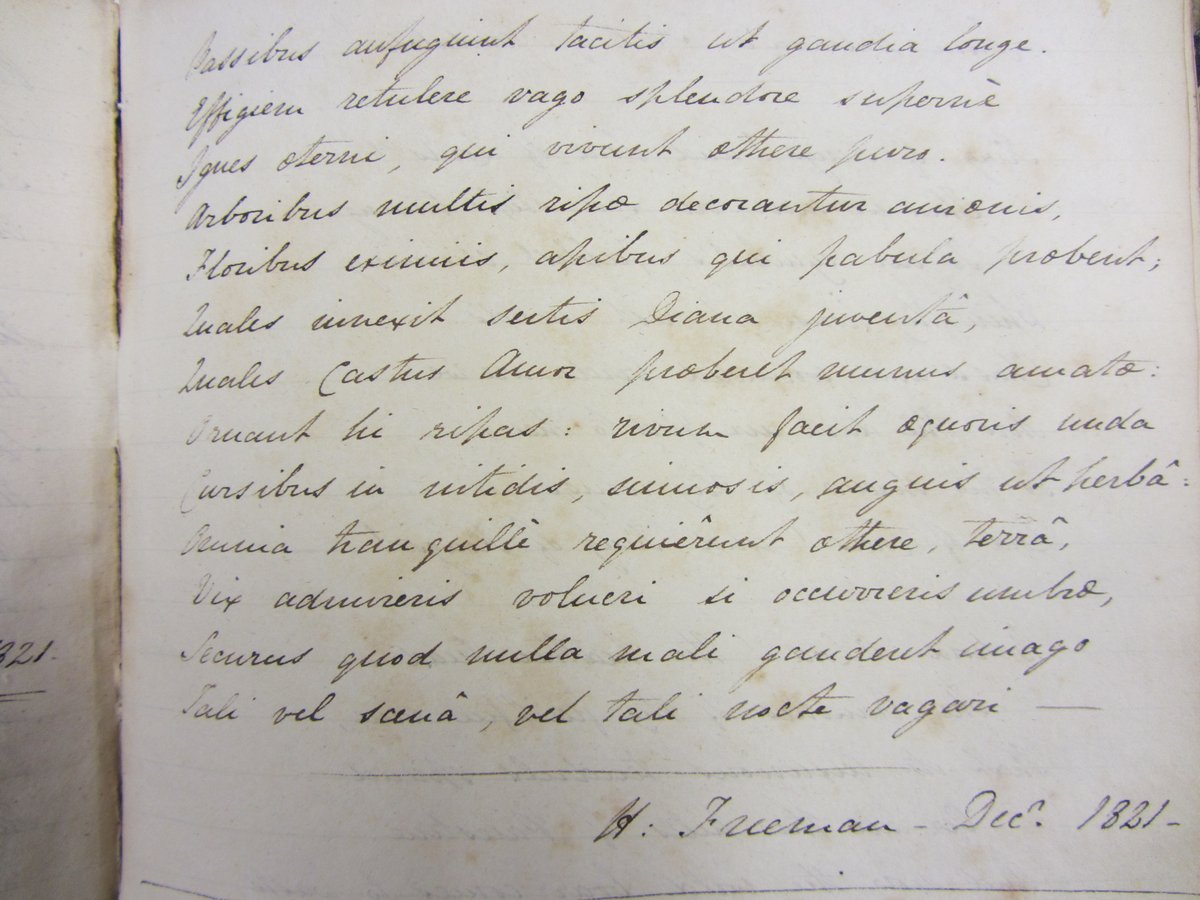 Passibus aufugiunt tacitis ut gaudia longe.
Effigiem retulere vago splendore supernè
Ignes æterni, qui vivunt æthere puro.
Arboribus multis ripæ decorantur amœnis,
Floribus eximiis, apibus qui pabula præbent;
Quales innexit sertis Diana juventâ,
Quales Castus Amor præberet munus amatæ:
Ornant hi ripas: rivum facit æquoris unda
Cursibus in nitidis, sinuosis, anguis ut herbâ:
Omnia tranquillè requiêrunt æthere, terrâ,
Vix admireris volucri si occurreris umbræ,
Securus quod nulla mali gauderet imago
Tali vel scænâ, vel tali nocte vagari —
H: Freeman - Decr. 1821-
821-